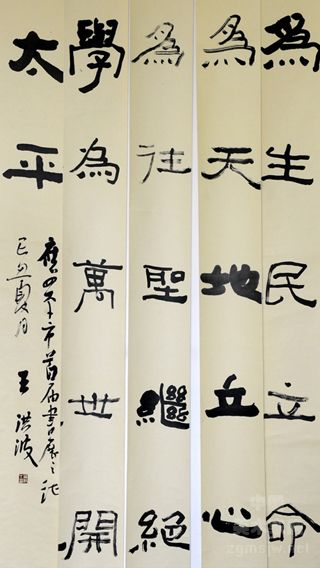 為生民立命
為天地立心
為往聖繼絕
學為萬世開
太平
應四平市首届書展之
己丑夏月 王洪波
zgmsjw.net